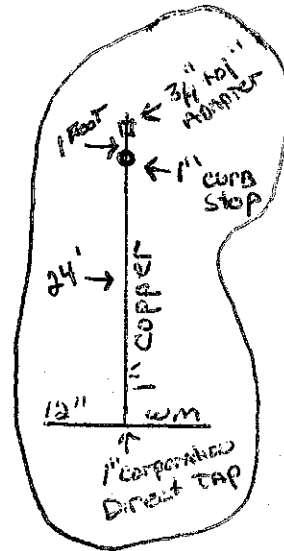 3/4" to 1"
ADAPTER
1 Foot
1"
curb
stop
24'
1" copper
12" WM
1" corporation
Direct TAP